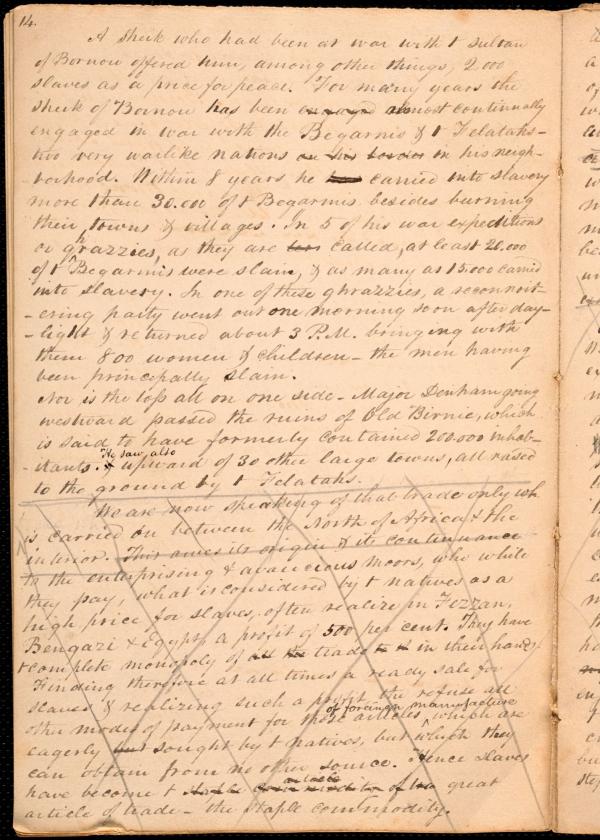 14.
A Sheik who had been at war with t Sultan
of Bornou offered him, among other things, 2.000
slaves as a price for peace. For many years the
sheik of Bornou has been engaged almost continually
engaged in war with the Begarmis & t Felatahs-
two very warlike nations on his border in his neigh-
-borhood. Within 8 years he carried into slavery
more than 30.000 of t Begarmis besides burning
their towns & villages. In 5 of his war expeditions
or ghrazzies, as they are called, at least 20.000
of t Begarmis were slain, & as many as 15.000 carried
into slavery. In one of these ghrazzies, a reconnoit-
-ering party went out one morning soon after day-
-light & returned about 3 P.M. bringing with
them 800 women & children- the men having
been principally slain.
Nor is the loss all on one side- Major Denham going
westward passed the ruins of Old Birnie, which
is said to have formerly contained 200.000 inhab-
He saw, also
-itants. & upward of 30 other large towns, all rased
to the ground by t Felatahs.
We are now speaking of that trade only wh
is carried on between the North of Africa & the
interior. This owes its origin & its continuance
to the enterprising & avaricious Moors, who while
they pay, what is considered by t natives as a
high price for slaves, often realize in Fezzan,
Bengazi & Egypt, a profit of 500 per cent. They have
t complete monopoly of all the trade in their hands.
Finding therefore at all times a ready sale for
slaves & realizing such a profit they refuse all
of foreign manufacture
other modes of payment for these articles, which are
eagerly sought by t natives, but which they
can obtain from no other source. Hence slaves
article
have become t staple commodity of tra great
article of trade- the staple commodity.